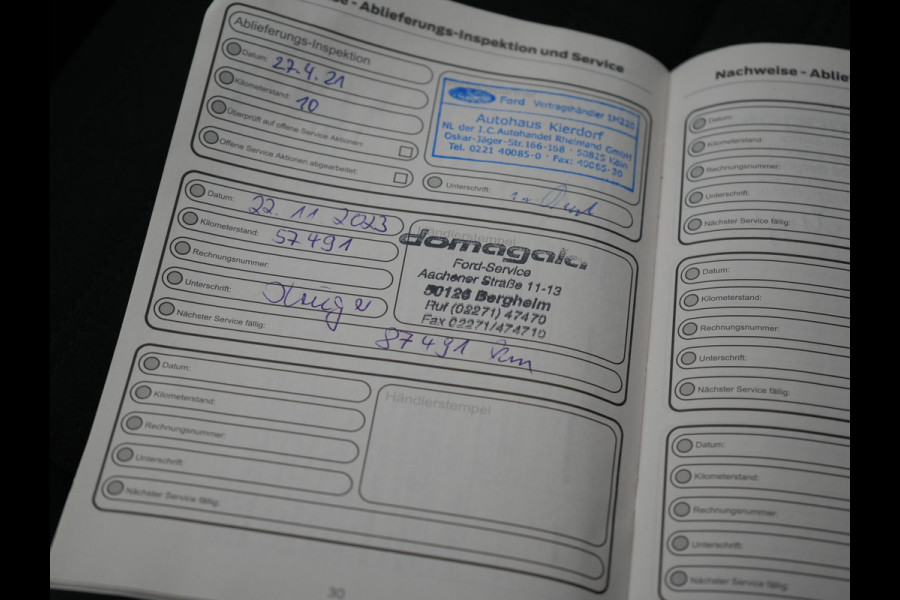 - Ablieferungs-Inspektion und Service
Ablieferungs-Inspektion
Datum: 27.4.21
Kilometerstand: 10
Überprüft auf offene Service Aktionen:
Offene Service Aktionen abgearbeitet:
Ford Vertragshändler
Autohaus Kierdorf
NL der I.C. Autohandel Rheinland GmbH
Oskar-Jäger-Str. 166-168 · 50825 Köln
Tel. 0221 40085-0 · Fax: 40085-30
Unterschrift:
Datum: 22.11 2023
Kilometerstand: 57491
Rechnungsnummer:
Unterschrift:
Nächster Service fällig: 87491 km
Händlerstempel
domagala.
Ford-Service
Aachener Straße 11-13
50126 Bergheim
Ruf (02271) 47470
Fax 02271/474710
Datum:
Kilometerstand:
Rechnungsnummer:
Unterschrift:
Nächster Service fällig:
Händlerstempel
30
Nachweise - Ablie
Datum:
Kilometerstand:
Rechnungsnummer:
Unterschrift:
Nächster Service fällig:
Datum:
Kilometerstand:
Rechnungsnummer:
Unterschrift:
Nächster Service fällig:
Datum:
Kilometerstand:
Rechnungsnummer:
Unterschrift:
Nächster Service fällig: